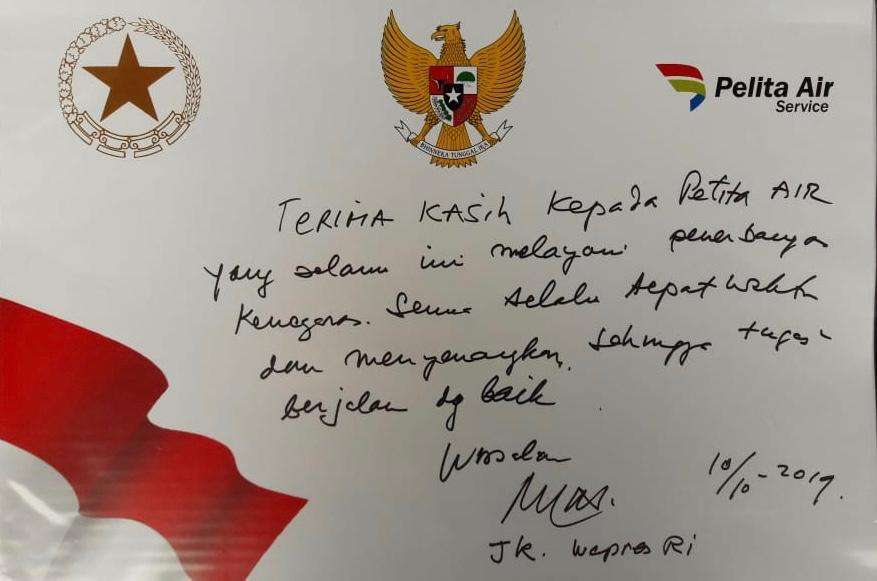 BHINNEKA TUNGGAL IKA
Pelita Air
Service
TERIMA KASIH Kepada Pelita AIR
yang selama ini melayani penerbangan
Kenegaraan. Semua selalu tepat waktu
dan menyenangkan, sehingga tugas²
berjalan dg baik
Wassalam
10/10-2019.
JK. Wapres RI